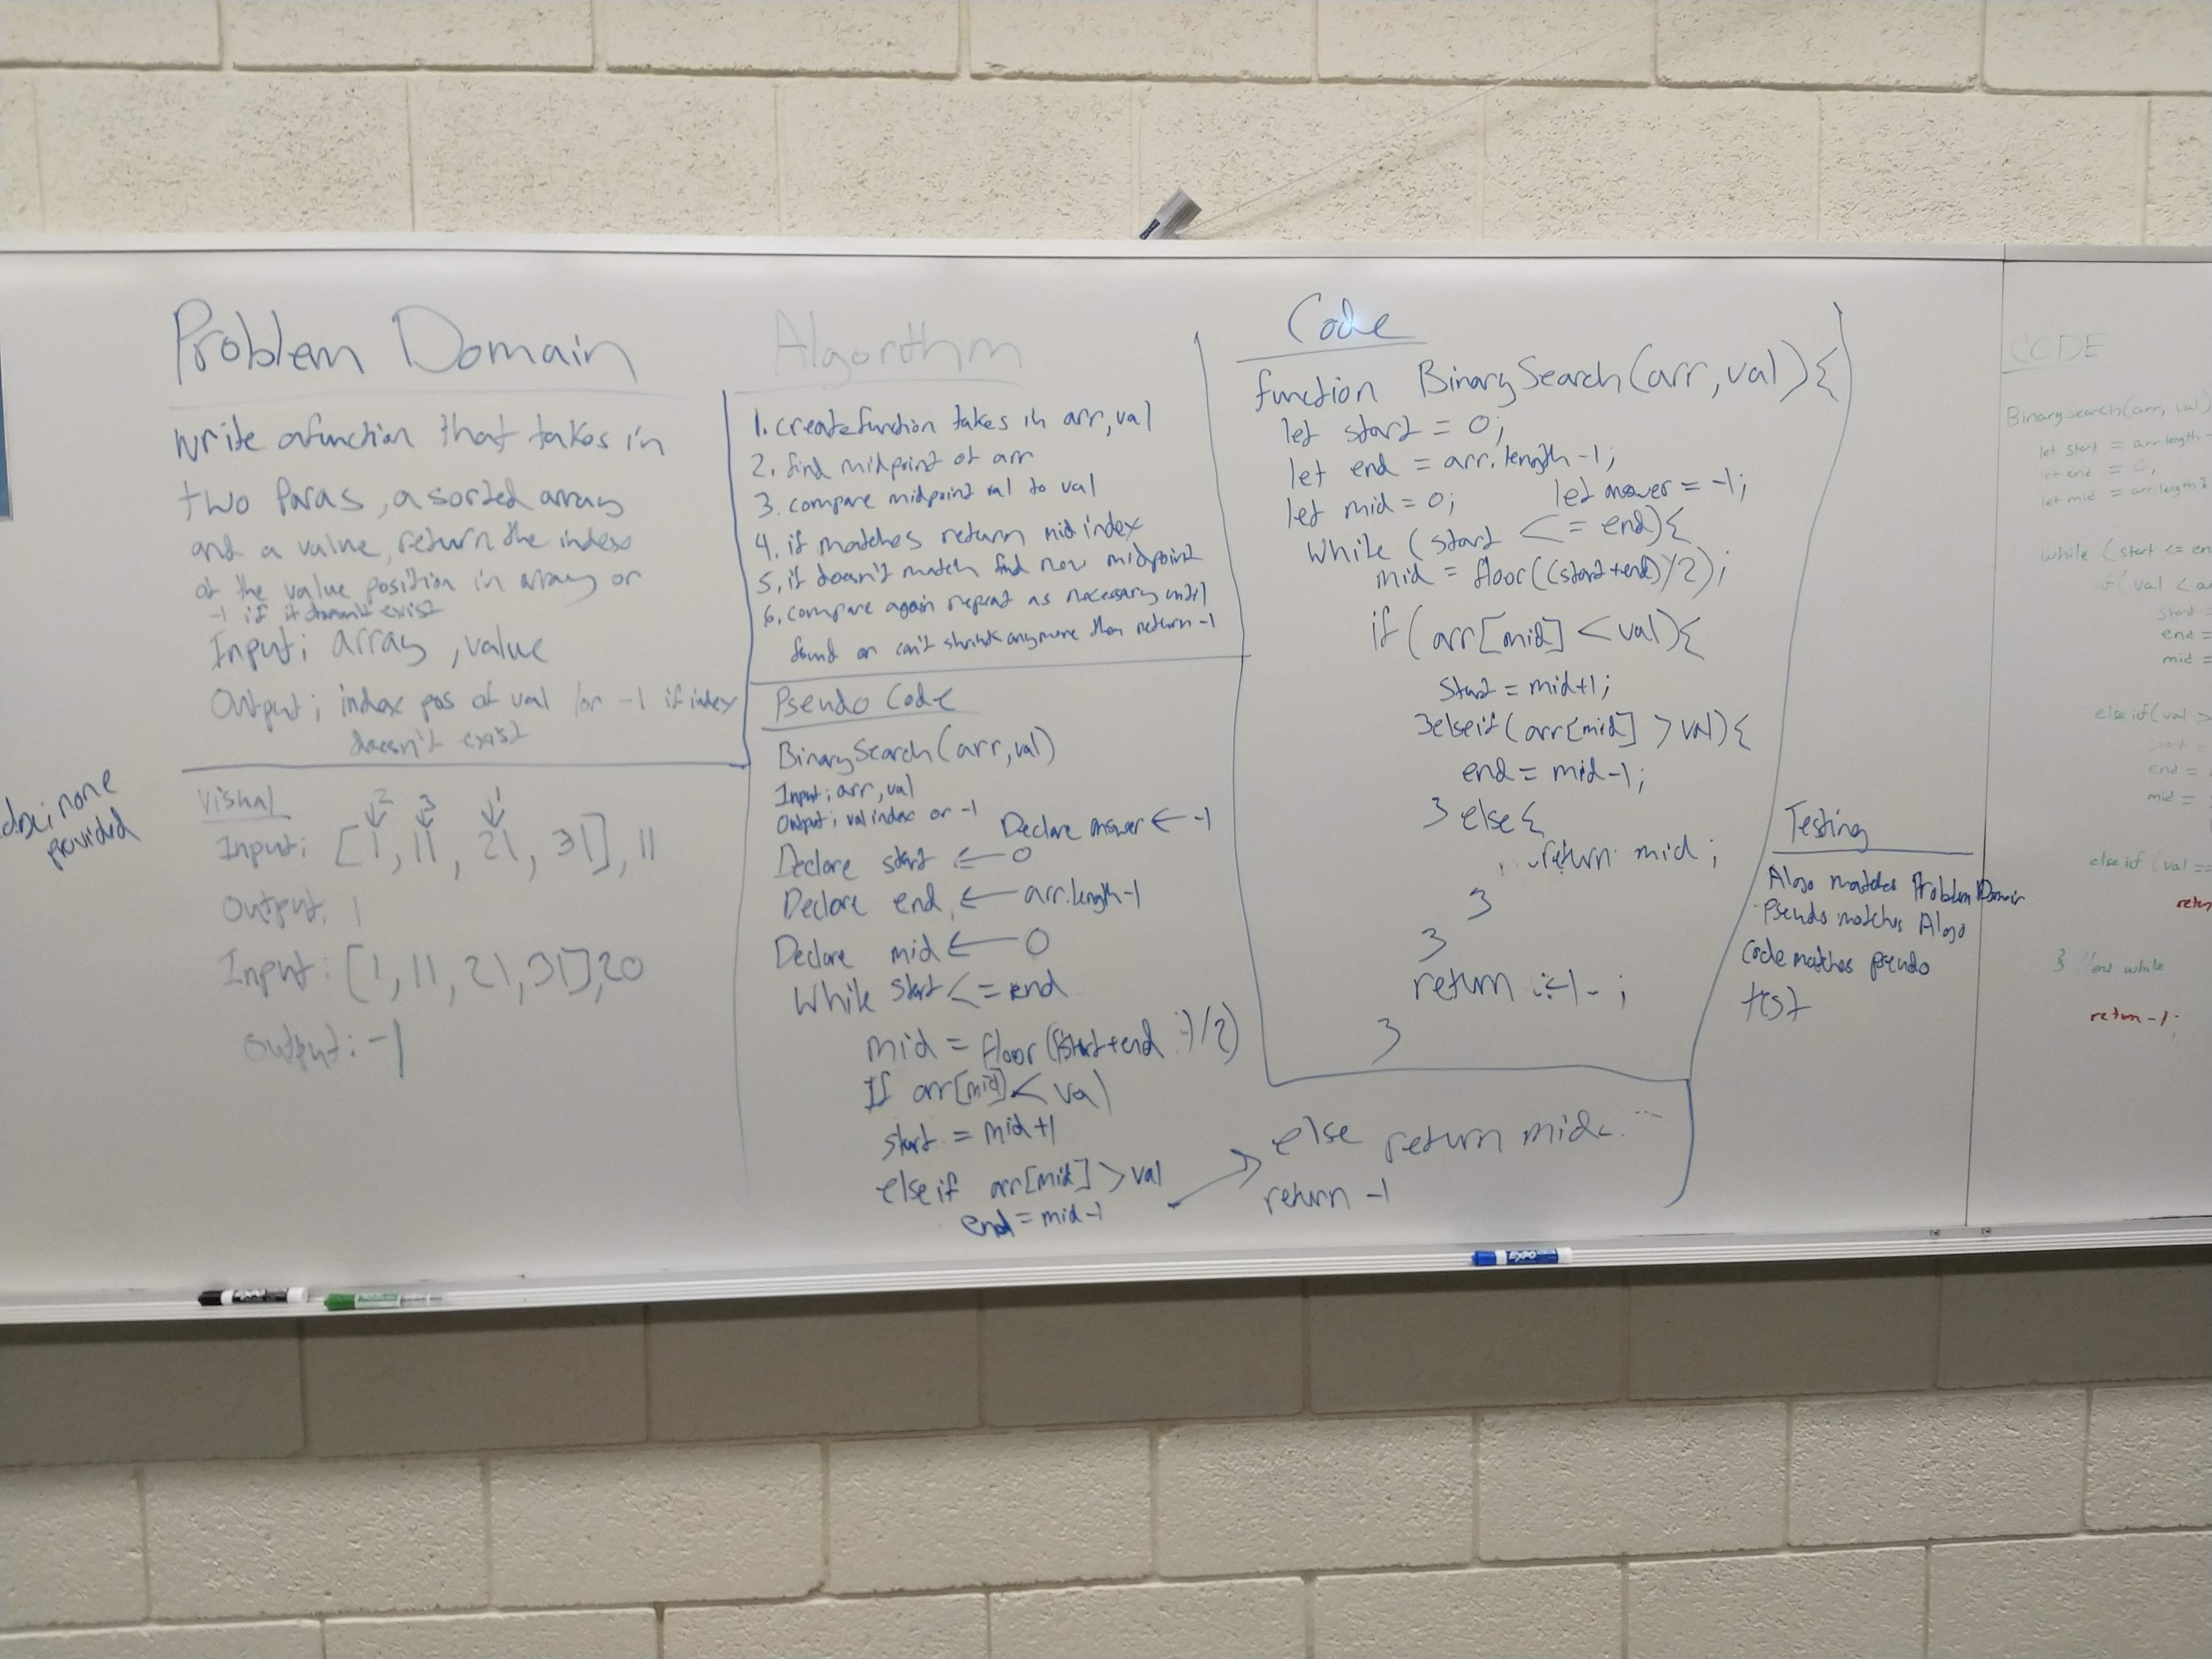 Problem Domain
Write a function that takes in
two Paras, a sorted array
and a value, return the index
of the value position in array or
-1 if it doesn't exist
Input; array, value
Output; index pos of val /or -1 if index
doesn't exist
none
provided
Visual
2 3 1
Input; [1, 11, 21, 31], 11
Output: 1
Input: [1, 11, 21, 31], 20
Output: -1
Algorithm
1. create function takes in arr, val
2. find midpoint of arr
3. compare midpoint val to val
4. if matches return mid index
5. if doesn't match find new midpoint
6. compare again repeat as necessary until
found or can't shrink anymore then return -1
Pseudo Code
BinarySearch(arr, val)
Input; arr, val
Output; val index or -1
Declare answer ← -1
Declare start ← 0
Declare end ← arr.length-1
Declare mid ← 0
While start <= end
mid = floor((start+end)/2)
If arr[mid] < val
start = mid+1
else if arr[mid] > val
end = mid-1
else return mid
return -1
Code
function BinarySearch(arr, val){
let start = 0;
let end = arr.length-1;
let mid = 0; let answer = -1;
While (start <= end){
mid = floor((start+end)/2);
if (arr[mid] < val){
start = mid+1;
}else if (arr[mid] > val){
end = mid-1;
} else {
return mid;
}
}
return -1;
}
Testing
Algo matches Problem Domain
Pseudo matches Algo
Code matches pseudo
test
CODE
BinarySearch(arr, val)
let start = arr.length-
let end = 0;
let mid = arr.length
while (start <= en
if (val < a
start =
end =
mid =
else if (val >
start =
end =
mid =
else if (val ==
retur
} // end while
return -1;
EXPO